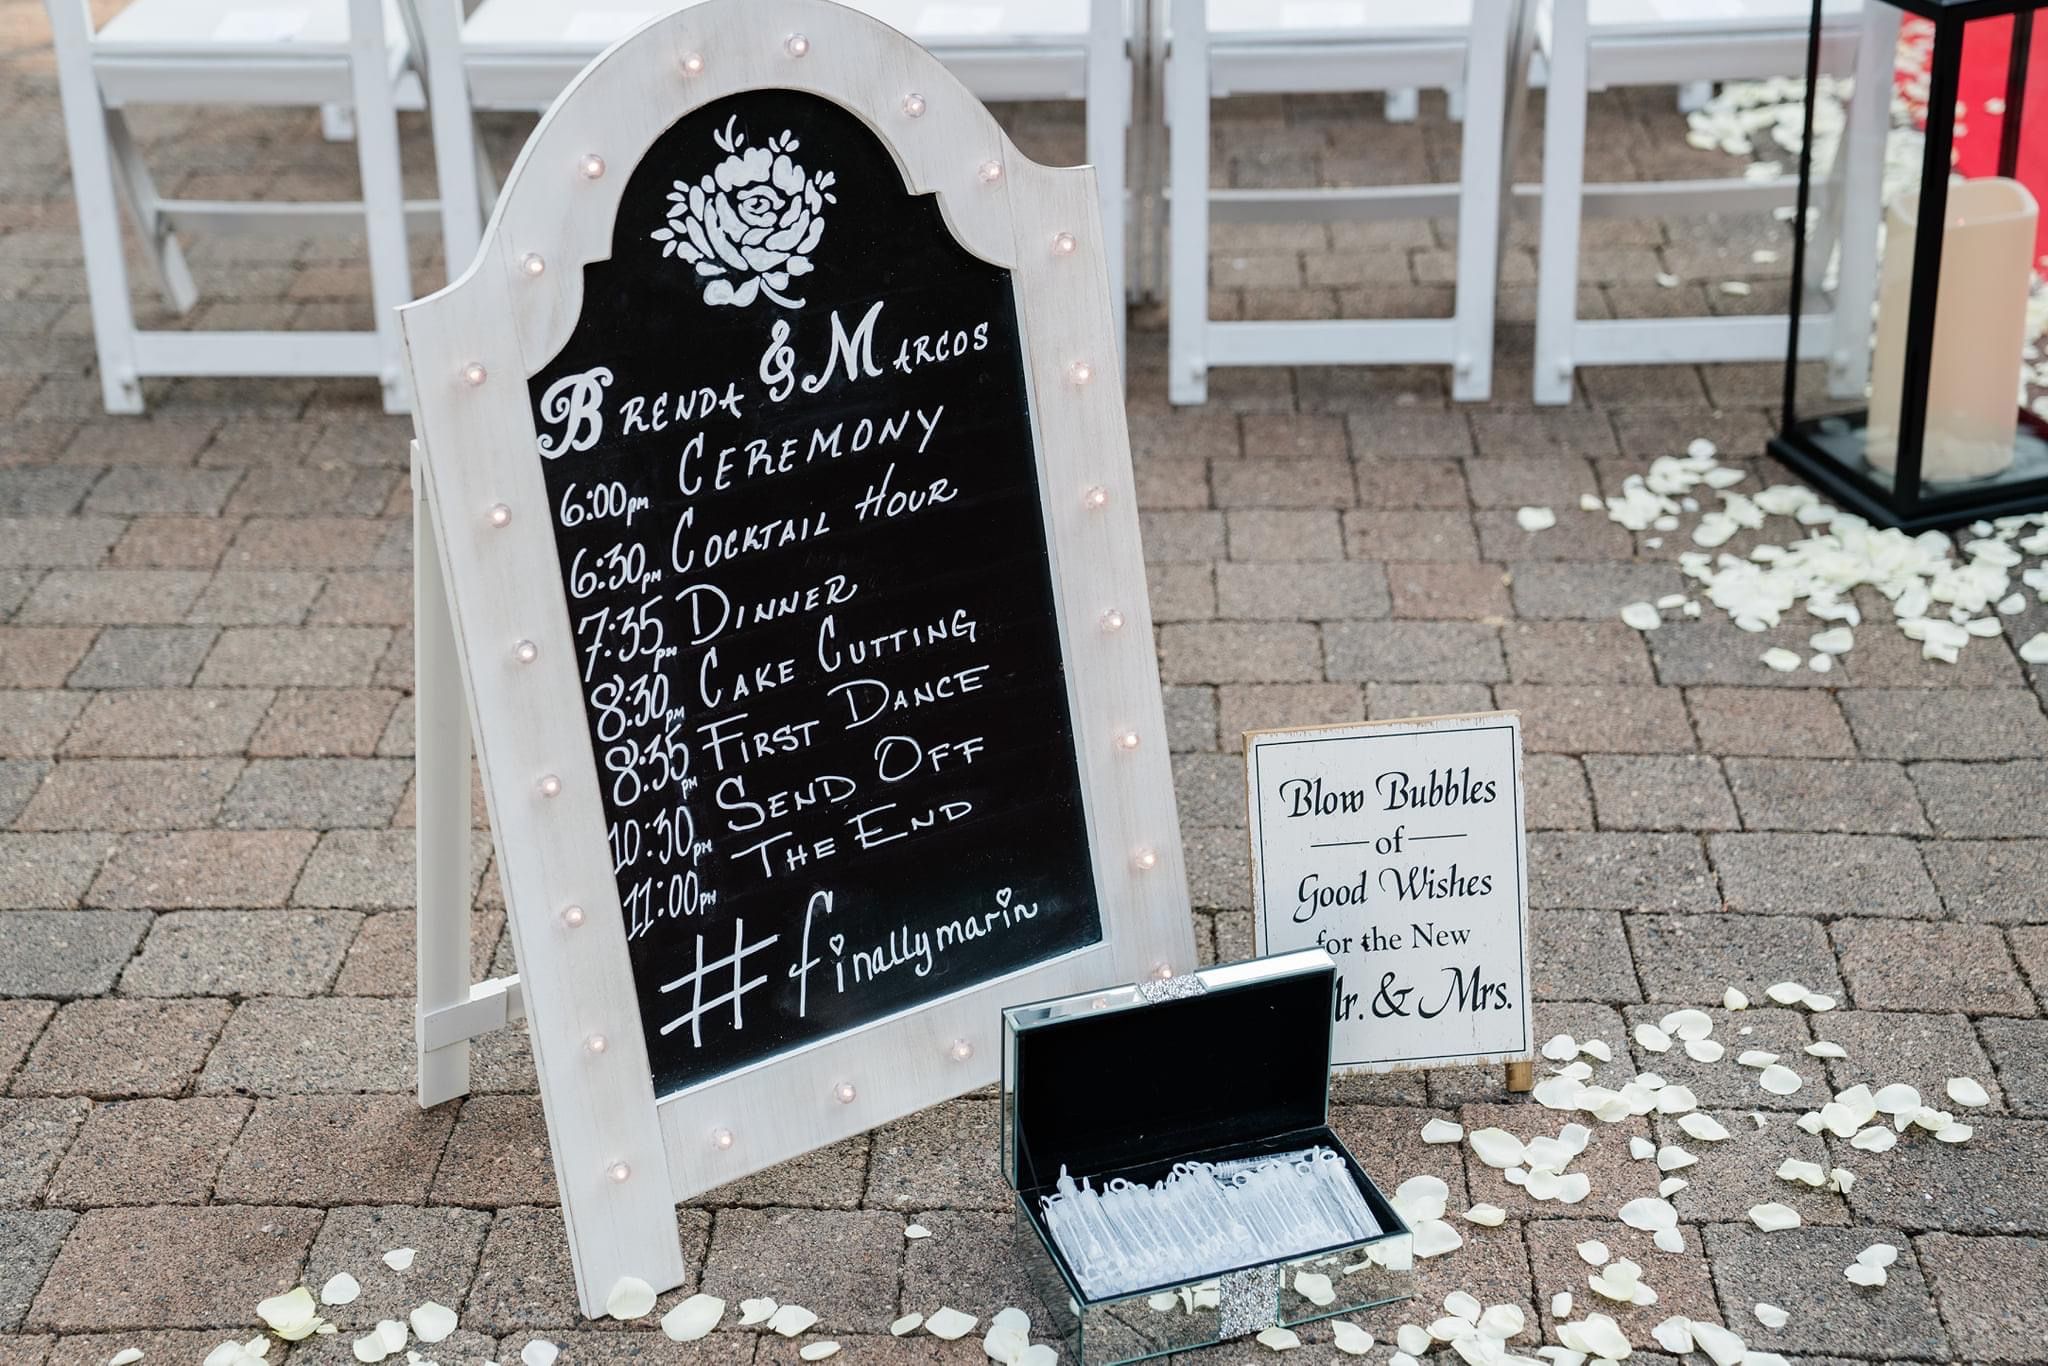 Brenda & Marcos
6:00pm Ceremony
6:30pm Cocktail Hour
7:35pm Dinner
8:30pm Cake Cutting
8:35pm First Dance
10:30pm Send Off
11:00pm The End
#finallymarin
Blow Bubbles
of
Good Wishes
for the New
Mr. & Mrs.